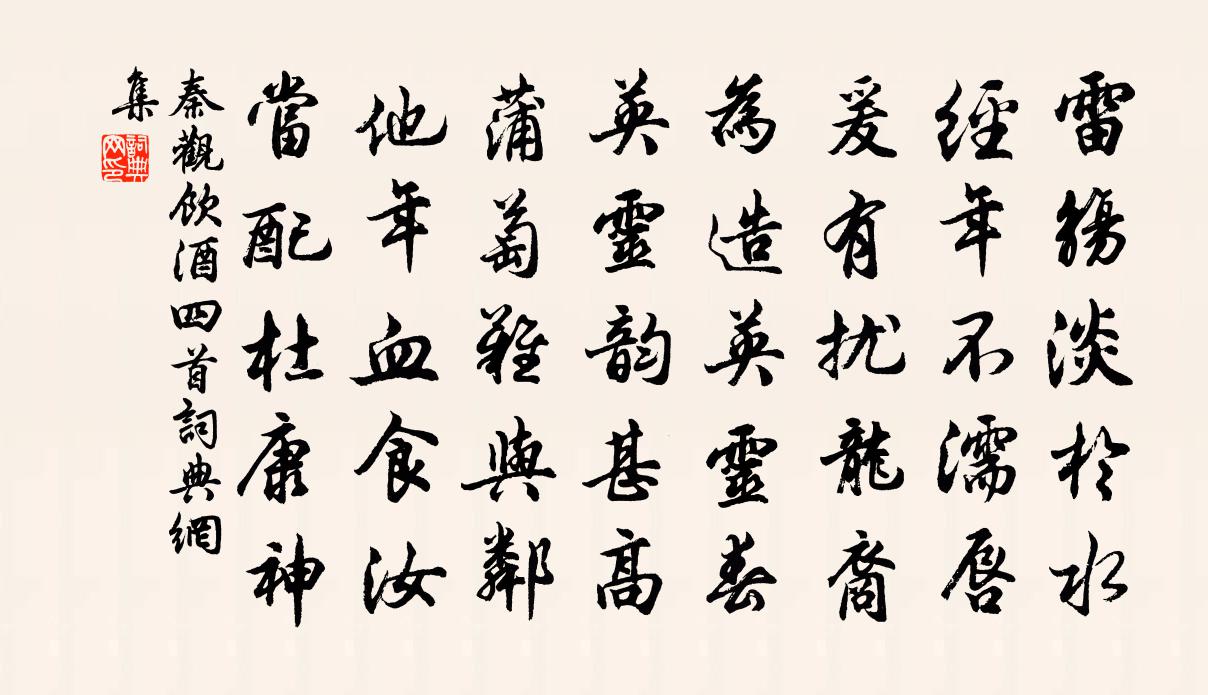 雷觴淡於水
經年不濡唇
爰有擾龍裔
為造英靈春
英靈韵甚高
蒲萄難與鄰
他年血食汝
當配杜康神
秦觀飲酒四首詞典網
集
詞典
网印